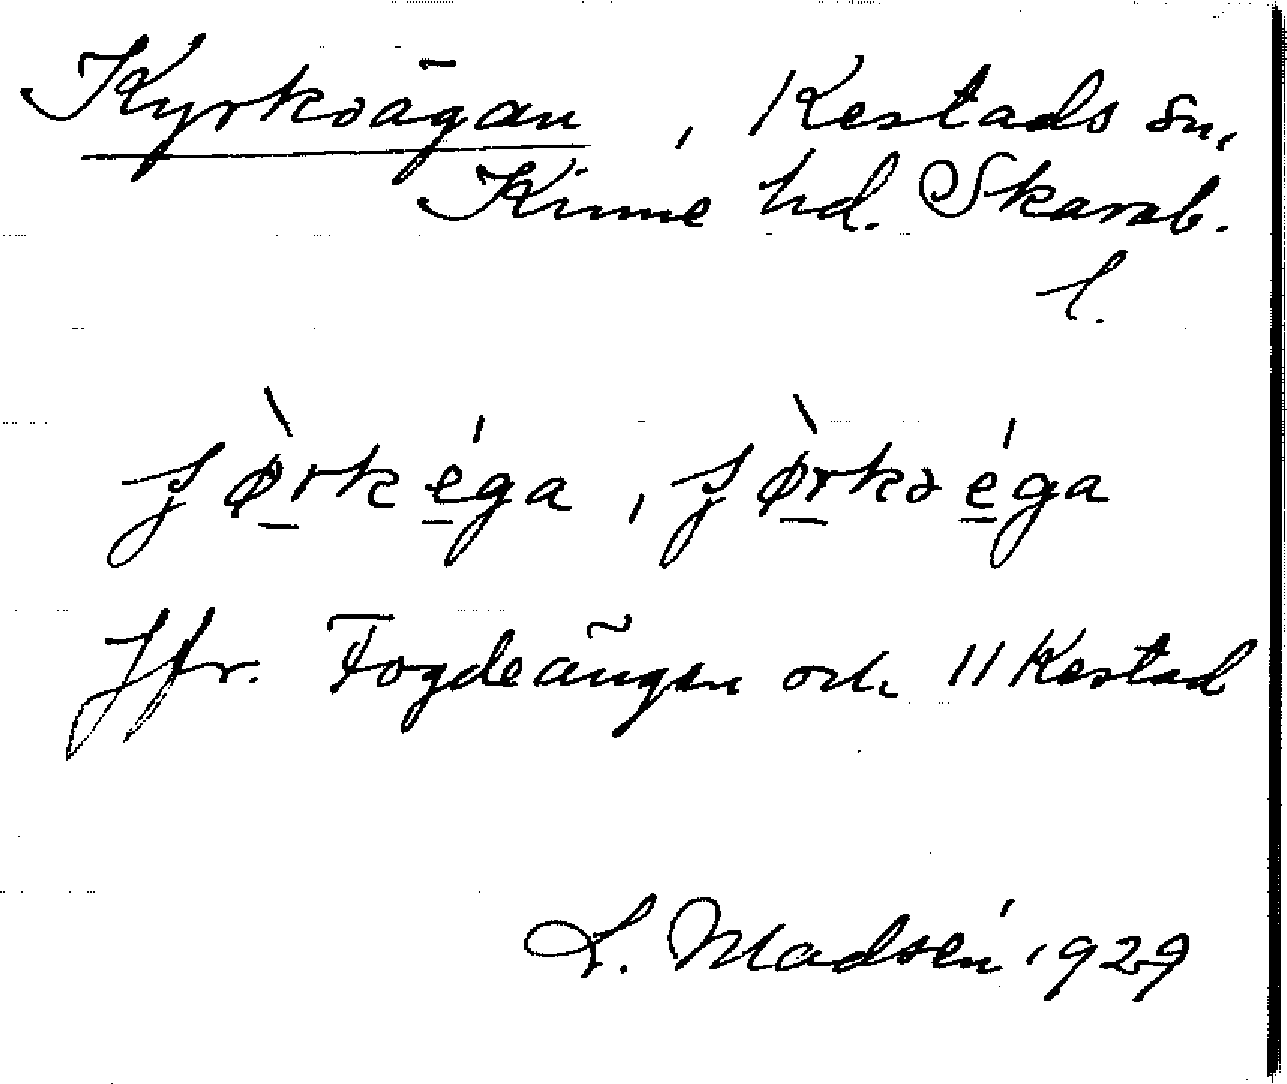 Kyrkvägan, Kestads sn,
Kinne hd. Skarab.
l.
jø̀rkéga, jø̀rkvéga
Jfr. Fogdeängen och 11 Kestad
L. Madsén 1929